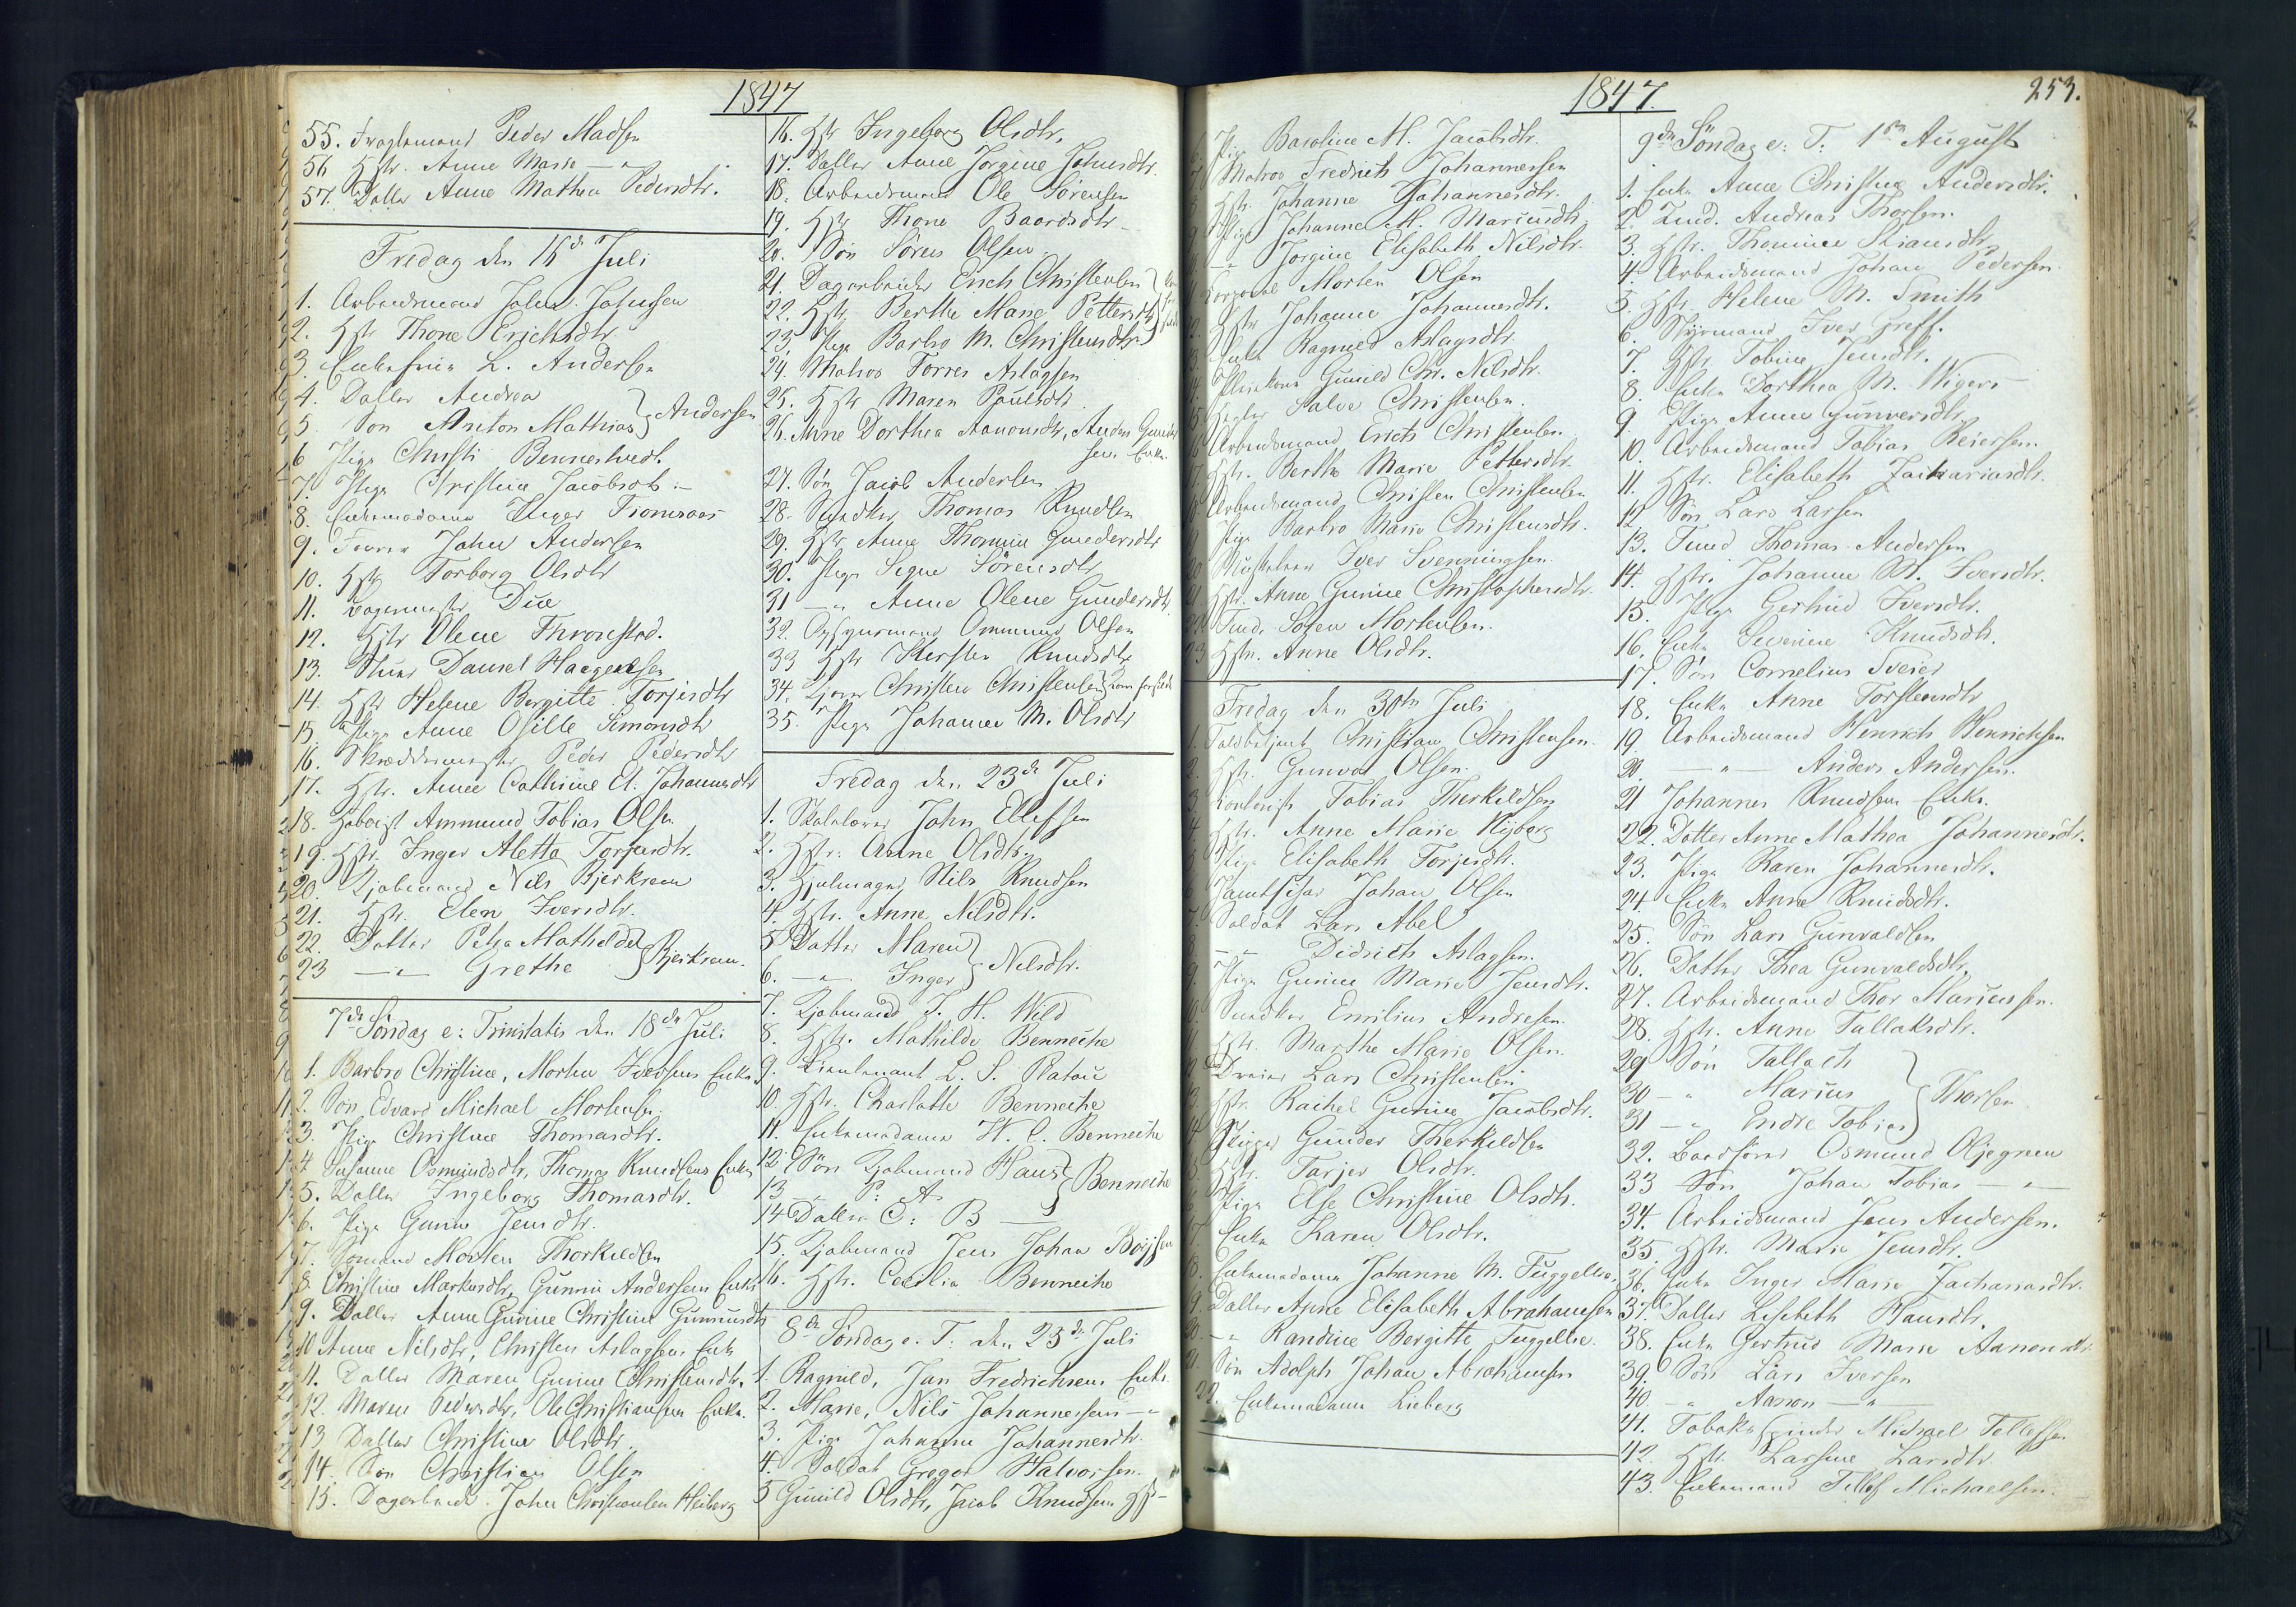 1847
55. Fragtemand Peder Madsen
56 Hstr. Anne Marie — "
57. Datter Anne Mathea Pedersdtr.
Fredag den 16de Juli
1. Arbeidsmand Johns. Johnsen
2. Hstr Thone Erichsdtr
3. Enkefrue L. Andersen
4. Datter Andrea
5. Søn Anton Mathias } Andersen
6 Pige Christi Bennestvedt.
7. Pige Christine Jacobsdtr.
8. Enkemadame Inger
9. John Andersen
10. Hstr Torborg Olsdtr
11. Bagermester Due
12. Hstr Olene Thronstad.
13. Daniel Haagensen
14. Hstr Helene Bergitte Torjersdtr
15. Pige Anne Osille Simonsdtr
16. Skræddermester Peder Pedersdtr
17. Hstr. Anne Cathrine El. Johannesdtr
18. Hoboist Ammund Tobias Olsen
19. Hstr. Inger Aletta Torjersdtr.
20. Kjøbmand Nils Bjerkrem
21. Hstr. Elen Iversdtr.
22. Datter Petra Mathilde
23 — " — Grethe } Bjerkrem.
7de Søndag e: Trinitatis den 18de Juli
1. Barbro Christine, Morten Iversens Enke
2. Søn Edvard Michael Mortensen.
3. Pige Christine Thomasdtr.
4. Susanne Osmundsdtr, Thomas Knudsens Enke
5. Datter Ingeborg Thomasdtr.
6. Pige Gunne Jensdtr.
7. Sømand Morten Thorkildsen
8. Christine Markusdtr, Gunnu Andersens Enke
9. Datter Anne Gurine Christine Gunnusdtr
10 Anne Nilsdtr, Christen Aslagsens Enke
11. Datter Maren Gurine Christensdtr.
12. Maren Pedersdtr, Ole Christiansens Enke.
13 Datter Christine Olsdtr.
14. Søn Christian Olsen
15. Dagarbeider John Christensen Heiberg
16. Hstr Ingeborg Olsdtr,
17. Datter Anne Jørgine Johnsdtr.
18. Arbeidsmand Ole Sørensen
19. Hstr Thone Baardsdtr
20. Søn Søren Olsen
21. Dagarbeider Erich Christensen
22. Hstr Berthe Marie Pettersdtr
23. Pige Barbro M. Christensdtr
24. Matros Torres Aslagsen
25. Hstr Maren Poulsdtr
26. Anne Dorthea Aanonsdtr, Anders Gunder
sens Enke.
27. Søn Jacob Andersen
28. Snedker Thomas Knudsen
29. Hstr Anne Thomine Gundersdtr
30. Pige Signe Sørensdtr
31 — " Anne Olene Gundersdtr
32. Opsynsmand Ommund Olsen
33 Hstr Kirsten Knudsdtr
34. Christen Christensen
35. Pige Johanne M. Olsdtr
Fredag den 23de Juli
1. Skolelærer John Ellefsen
2. Hstr. Anne Olsdtr.
3. Hjulmager Nils Knudsen
4. Hstr. Anne Nilsdtr.
5 Datter Maren
6. — " — Inger } Nilsdtr.
7. Kjøbmand T. H. Wild
8. Hstr. Mathilde Benneche
9. Lieutenant L. S. Ratou
10. Hstr. Charlotte Benneche
11. Enkemadame H. C. Benneche
12. Søn Kjøbmand Hans
13 — " P: A. } Benneche
14 Datter C: B —
15. Kjøbmand Jens Johan Boysen
16. Hstr. Cecilia Benneche
8de Søndag e. T: den 25de Juli
1. Ragnild, Jan Fredrichsens Enke
2. Marie, Nils Johannesens — "
3. Pige Johanne Johannesdtr.
4. Soldat Gregor Halvorsen.
5 Gunild Olsdtr, Jacob Knudsens Hstr
1847.
253.
Pige Baroline M. Jacobsdtr.
Matros Fredrich Johannessen
Hstr. Johanne Johannesdtr.
Pige Johanne M. Mariusdtr.
— " Jørgine Elisabeth Nilsdtr.
Corporal Morten Olsen
Hstr Johanne Johannesdtr.
Enke Ragnild Aslagsdtr.
Gunild Chr. Nilsdtr.
Salve Christensen.
Arbeidsmand Erich Christensen
Hstr. Berthe Marie Pettersdtr.
Arbeidsmand Christen Christensen
Pige Barbro Marie Christensdtr.
20 Iver Svenningsen
21 Hstr. Anne Gurine Christophersdtr.
22 Søren Mortensen.
23 Hstr. Anne Olsdtr.
Fredag den 30te Juli
1. Toldbetjent Christian Christensen
2. Hstr. Gunvor Olsen.
3. Tobias Therkildsen
4. Hstr. Anne Marie Nyberg
5. Pige Elisabeth Torjersdtr.
6 Johan Olsen
7. Soldat Lars Abel
8 — " Didrich Aslagsen.
9. Pige Gurine Marie Jensdtr.
Snedker Emilius Andresen.
Hstr. Marthe Marie Olsen.
Dreier Lars Christensen
Hstr. Rachel Gurine Jacobsdtr.
Gunder Therkildsen
Hstr. Tarjer Olsdtr.
Pige Else Christine Olsdtr.
Enke Karen Olsdtr.
Enkemadame Johanne M. Tuggellin
Datter Anne Elisabeth Abrahamsen
— " Randine Bergitte Tuggelle.
21. Søn Adolph Johan Abrahamsen
22. Enkemadame Lieberg
9de Søndag e: T: 1ste August
1. Enke Anne Christine Andersdtr.
2. Andreas Thorsen.
3. Hstr. Thomine
4. Arbeidsmand Johan Pedersen.
5. Hstr. Helene M. Smith
6. Styrmand Iver Greff.
7. Hstr. Tobine Jensdtr.
8. Enke Dorthea M. Wigers
9. Pige Anne Gunversdtr
10. Arbeidsmand Tobias Reiersen.
11. Hstr. Elisabeth Zachariasdtr.
12 Søn Lars Larsen
13. Thomas Andersen
14. Hstr. Johanne M. Iversdtr.
15. Pige Gertrud Iversdtr.
16. Enke Severine Knudsdtr.
17. Søn Cornelius
18. Enke Anne Torstensdtr
19. Arbeidsmand Henrich Henrichsen
20. — " — Anders Andersen.
21 Johannes Knudsens Enke.
22. Datter Anne Mathea Johannesdtr.
23. Pige Karen Johannesdtr.
24. Enke Anne Knudsdtr.
25. Søn Lars Gunvaldsen
26. Datter Thea Gunvaldsdtr.
27. Arbeidsmand Thor Mariussen.
28. Hstr. Anne Tallaksdtr.
29 Søn Tallach
30 — " Marius } Thorsen
31 — " Endre Tobias
32. Osmund Oljegreen
33 Søn Johan Tobias — " —
34. Arbeidsmand Jens Andersen.
35. Hstr. Marie Jensdtr.
36. Enke Inger Marie Zachariasdtr.
37. Datter Lisebeth Hansdtr.
38. Enke Gertrud Marie Aanonsdtr.
39. Søn Lars Iversen
40. — " Aanon — " —
41. Tobakspinder Michael Tellefsen
42. Hstr. Larsine Larsdtr
43. Enkemand Tellef Michaelsen.